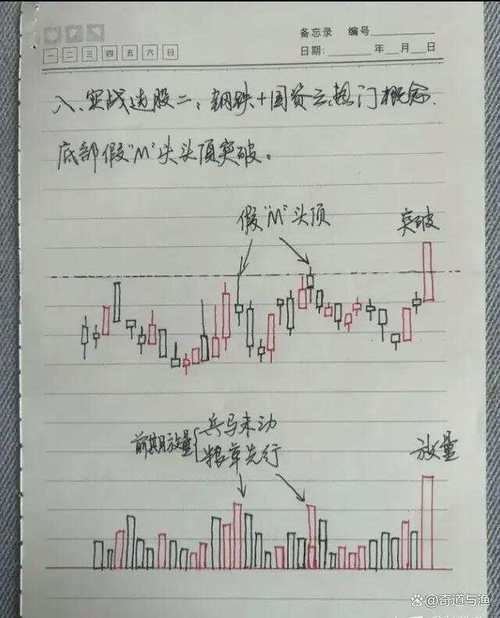 备忘录 编号
一 二 三 四 五 六 日
日期: 年 月 日
八、实战选股二:钢铁+国资云热门概念.
底部假"M"头头顶突破。
假"M"头顶
突破
前期放量
兵马未动
粮草先行
放量
@奇道与渔